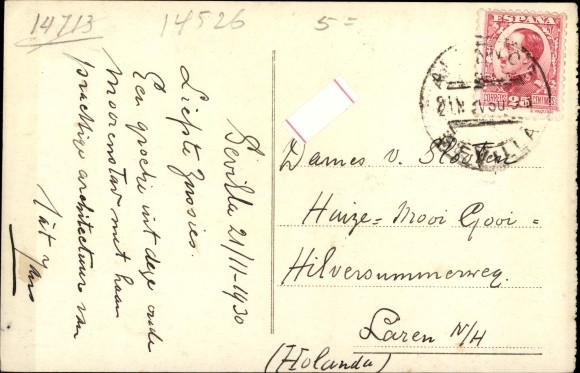 14713
14526
5 =
ESPAÑA
CORREOS 25 CENTIMOS
21 NOV 30
SEVILLA
Sevilla 21/11-1930
Liefste Zusies.
Een groetje uit deze oude
Moorenstad met haar
prachtige architectuur van
Dames v. 
Huize-Mooi Gooi=
Hilversummerweg.
Laren N/H
(Holanda)